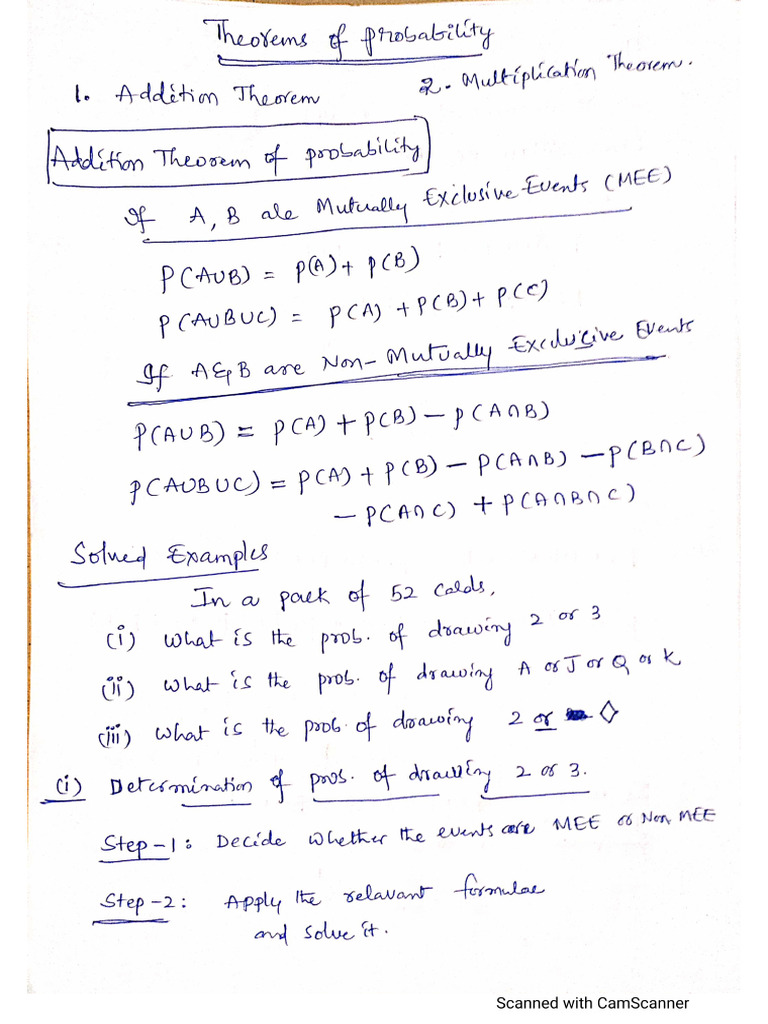 Theorems of probability
1. Addition Theorem 2. Multiplication Theorem.
Addition Theorem of probability
If A, B are Mutually Exclusive Events (MEE)
P(A∪B) = P(A) + P(B)
P(A∪B∪C) = P(A) + P(B) + P(C)
If A & B are Non-Mutually Exclusive Events
P(A∪B) = P(A) + P(B) - P(A∩B)
P(A∪B∪C) = P(A) + P(B) - P(A∩B) - P(B∩C)
- P(A∩C) + P(A∩B∩C)
Solved Examples
In a pack of 52 cards,
(i) What is the prob. of drawing 2 or 3
(ii) What is the prob. of drawing A or J or Q or K
(iii) What is the prob. of drawing 2 or ♢
(i) Determination of prob. of drawing 2 or 3.
Step-1: Decide whether the events are MEE or Non MEE
Step-2: Apply the relavant formulae
and solve it.
Scanned with CamScanner